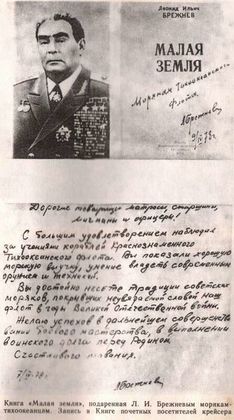 Леонид Ильич
БРЕЖНЕВ
МАЛАЯ
ЗЕМЛЯ
Морякам Тихоокеанского
флота.
Брежнев
Дорогие товарищи матросы, старшины,
мичманы и офицеры!
С большим удовлетворением наблюдал
за учениями кораблей Краснознаменного
Тихоокеанского флота. Вы показали хорошую
морскую выучку, умение владеть современным
оружием и техникой.
Вы достойно несете традиции советских
моряков, покрывших неувядаемой славой наш
флот в годы Великой Отечественной войны.
Желаю успехов в дальнейшем совершенство
вании боевого мастерства, в выполнении
воинского долга перед Родиной.
Счастливого плавания.
Брежнев
Книга «Малая земля», подаренная Л. И. Брежневым морякам-
тихоокеанцам. Запись в Книге почетных посетителей крейсера